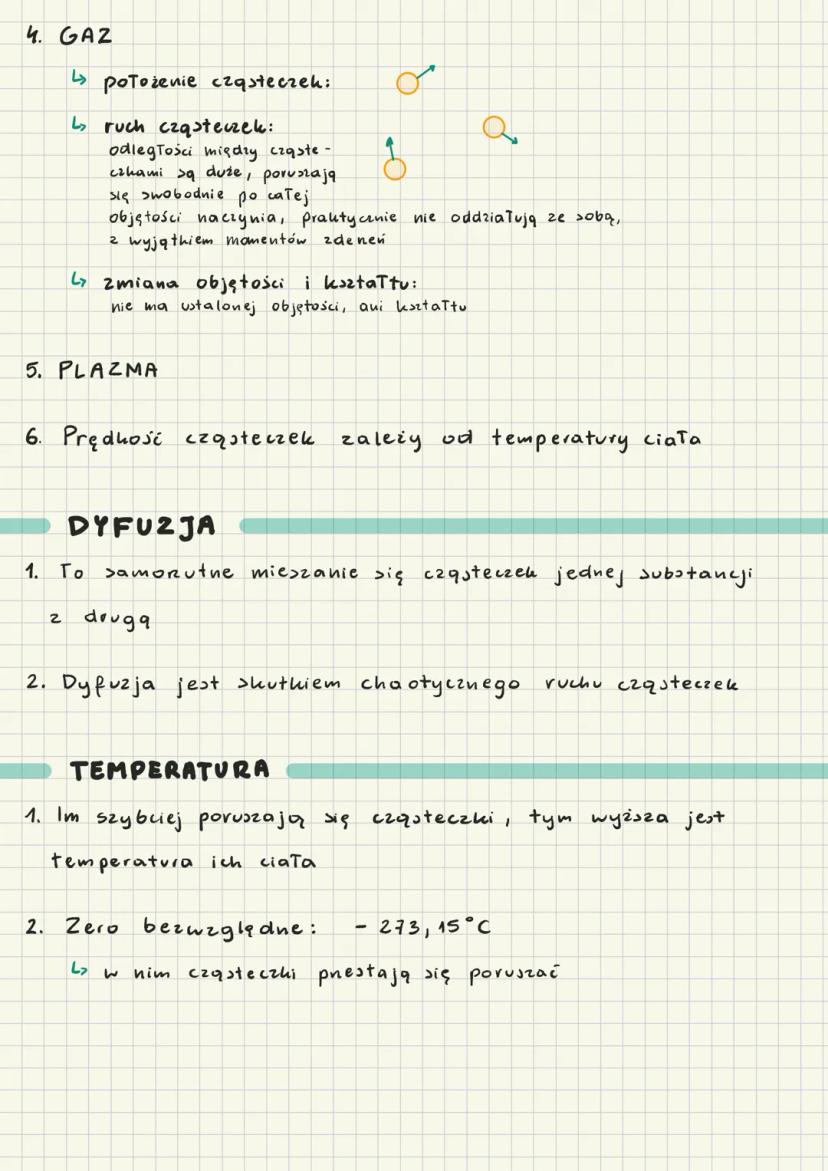 4. GAZ
↳ położenie cząsteczek:
↳ ruch cząsteczek:
odległości między cząste-
czkami są duże, poruszają
się swobodnie po całej
objętości naczynia, praktycznie nie oddziałują ze sobą,
z wyjątkiem momentów zderzeń
↳ zmiana objętości i kształtu:
nie ma ustalonej objętości, ani kształtu
5. PLAZMA
6. Prędkość cząsteczek zależy od temperatury ciała
DYFUZJA
1. To samorzutne mieszanie się cząsteczek jednej substancji
z drugą
2. Dyfuzja jest skutkiem chaotycznego ruchu cząsteczek
TEMPERATURA
1. Im szybciej poruszają się cząsteczki, tym wyższa jest
temperatura ich ciała
2. Zero bezwzględne: - 273,15°C
↳ w nim cząsteczki przestają się poruszać